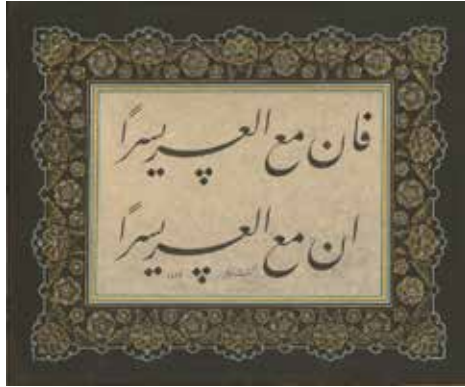 فان مع العسر یسراً
ان مع العسر یسراً